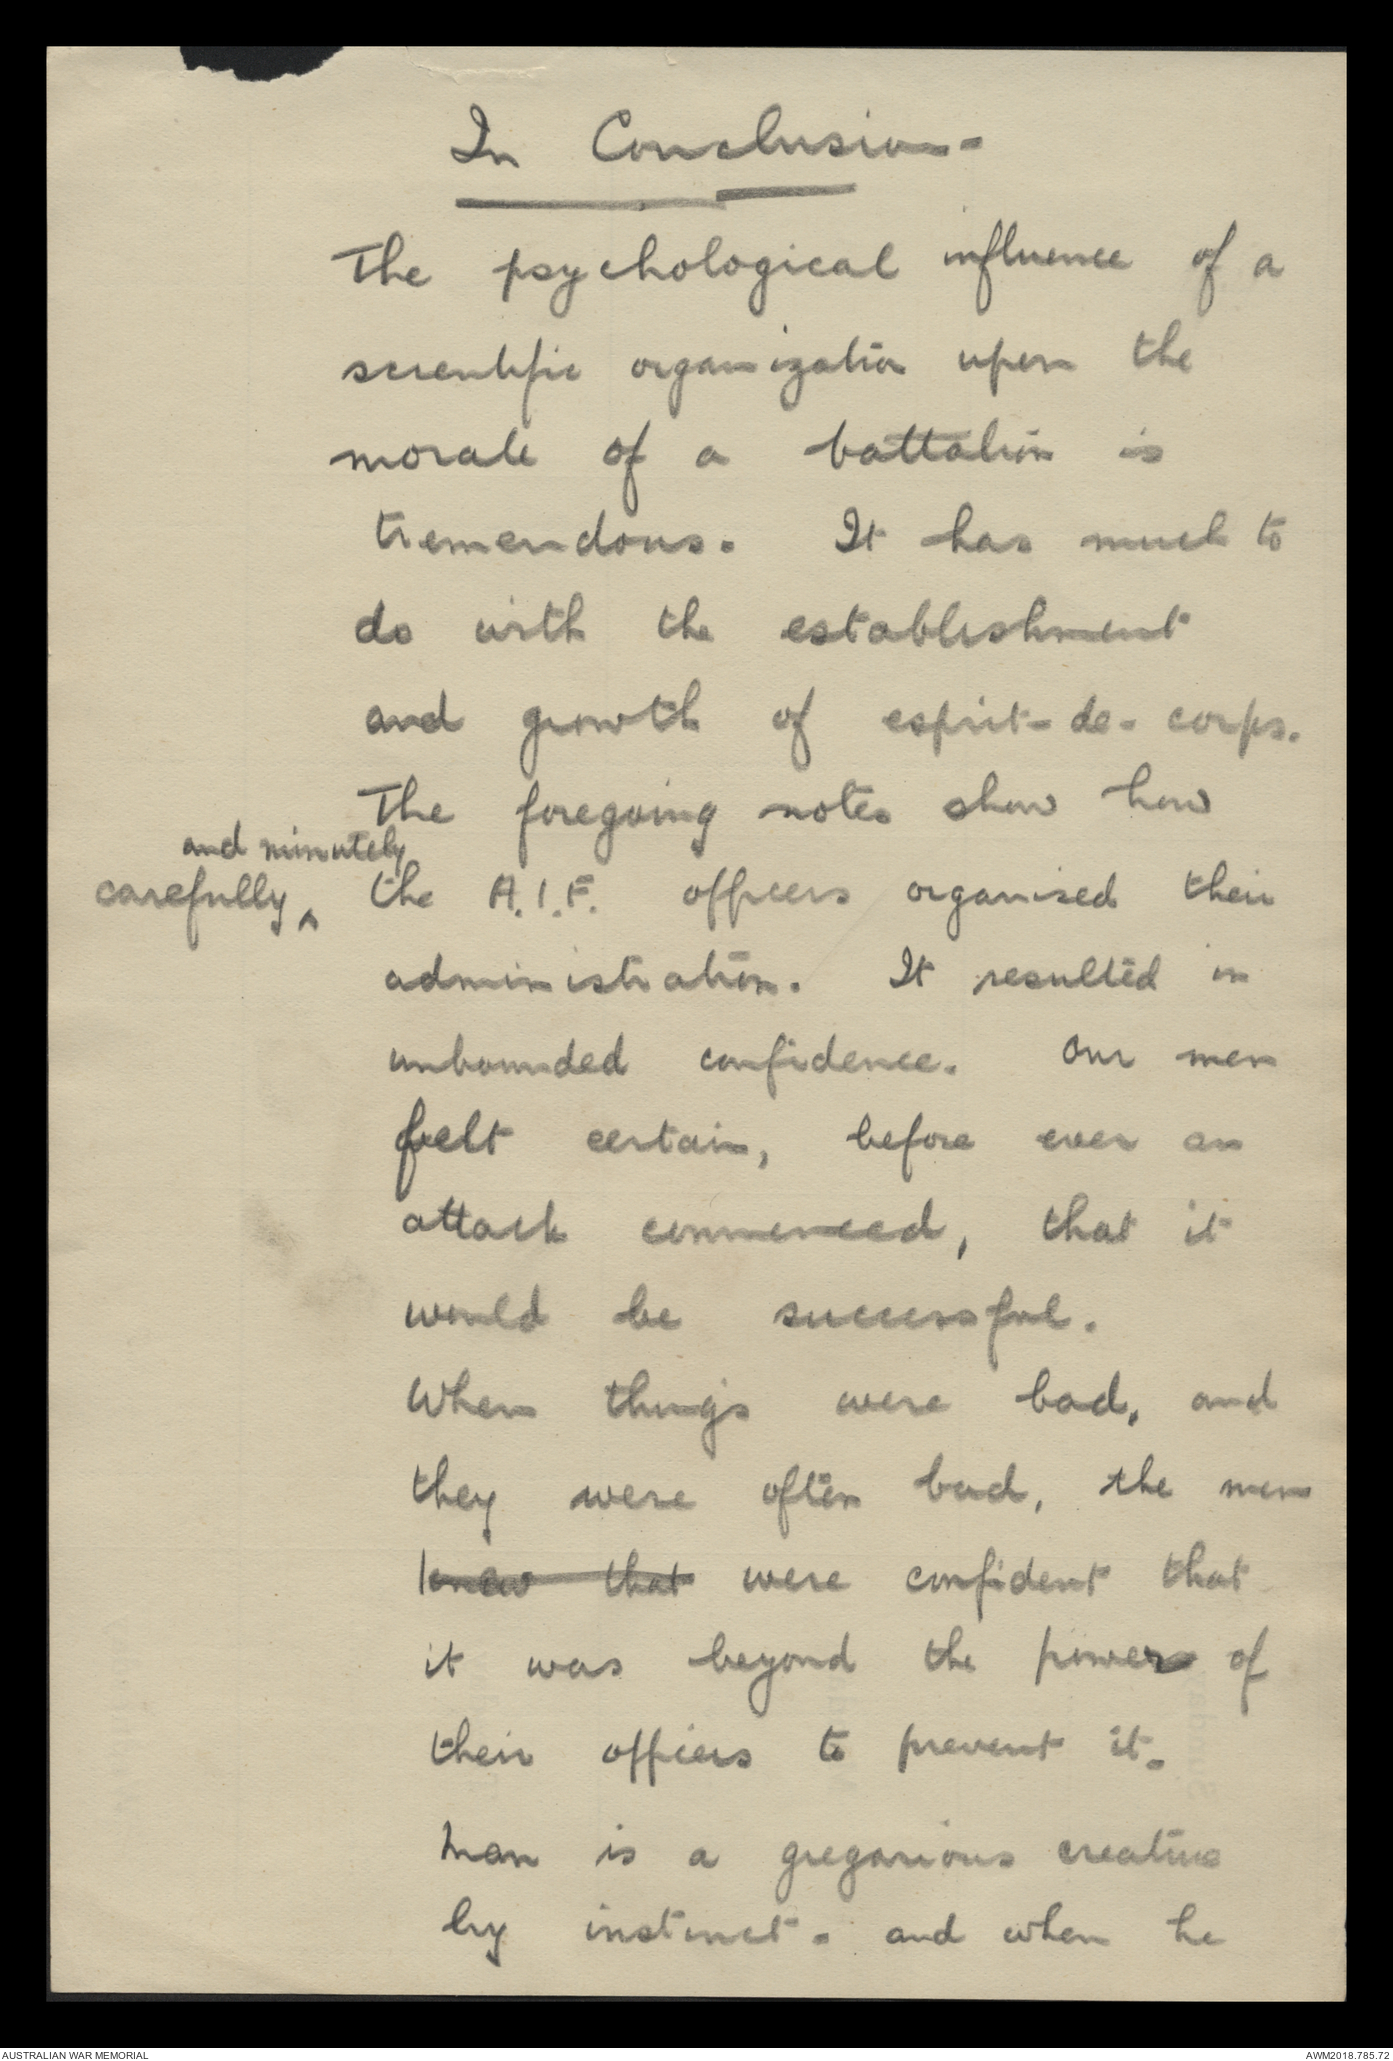 In Conclusion -
The psychological influence of a
scientific organization upon the
morale of a battalion is
tremendous. It has much to
do with the establishment
and growth of esprit-de-corps.
The foregoing notes show how
and minutely
carefully ^ the A.I.F. officers organised their
administration. It resulted in
unbounded confidence. Our men
felt certain, before ever an
attack commenced, that it
would be successful.
When things were bad, and
they were often bad, the men
knew that were confident that
it was beyond the power of
their officers to prevent it.
Man is a gregarious creature
by instinct. and when he
AUSTRALIAN WAR MEMORIAL
AWM2018.785.72